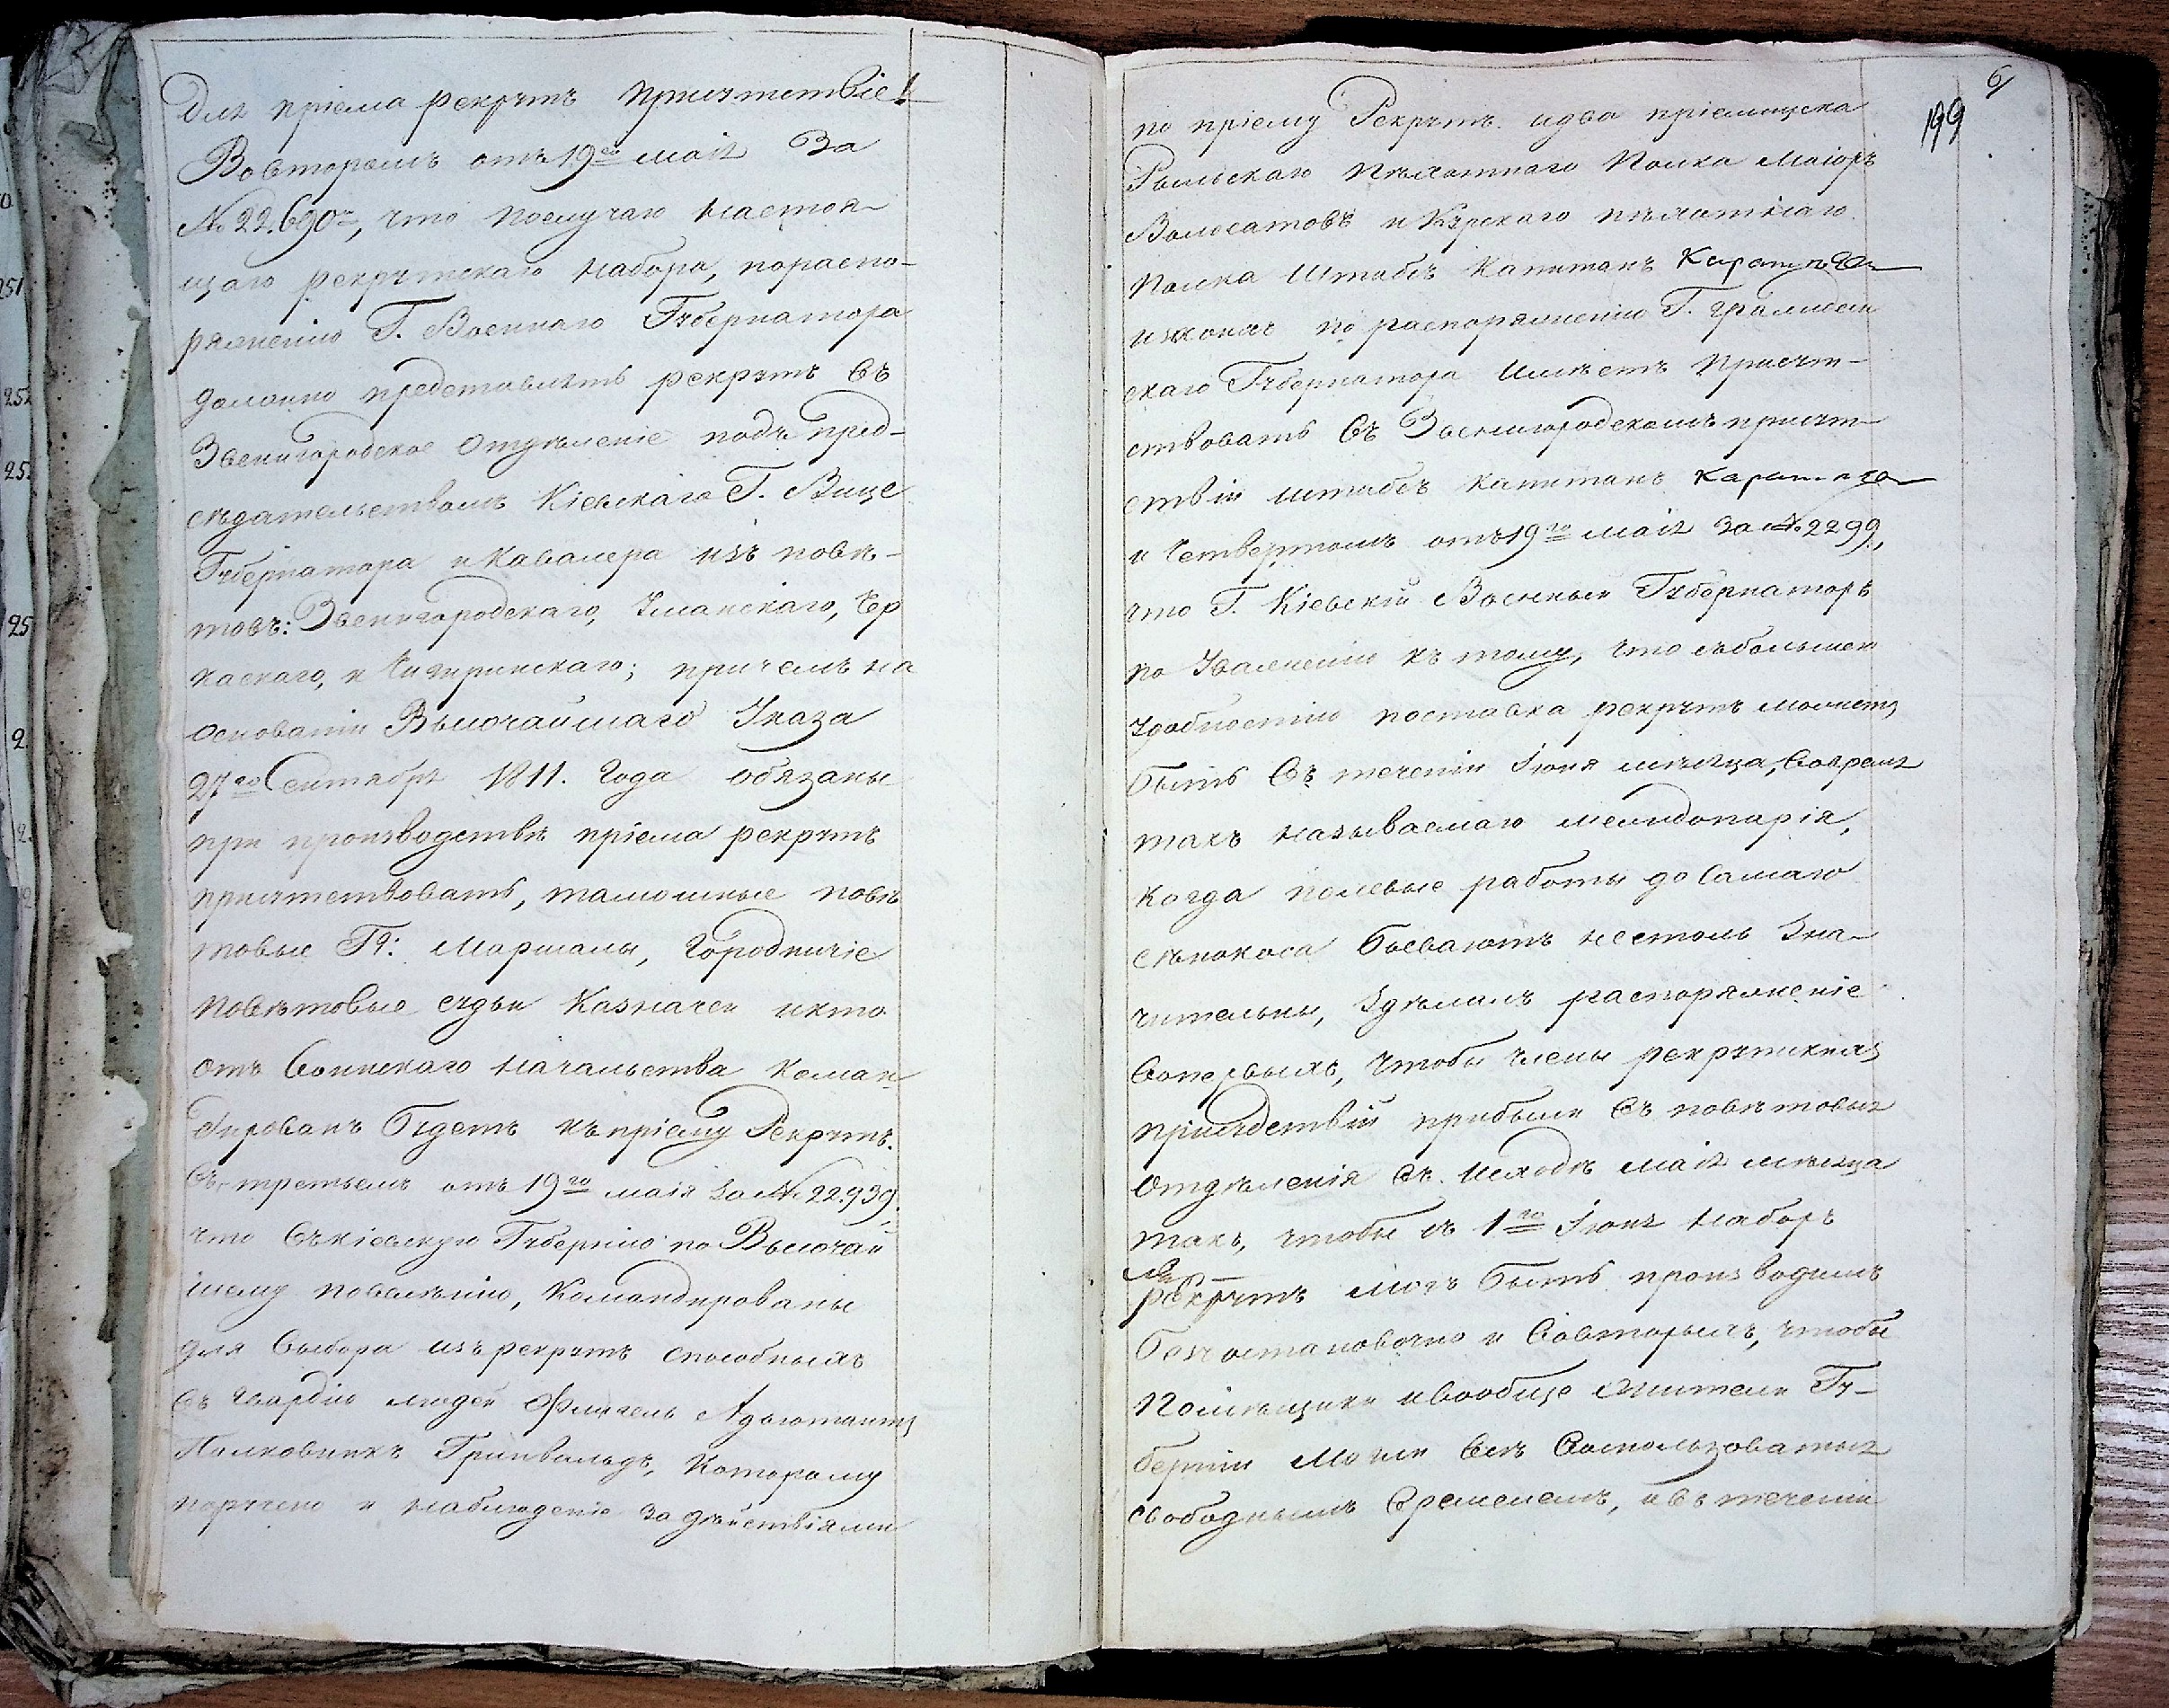 Для пріема рекрутъ присутствіе!
Вовторомъ отъ 19го маія За
№ 22.690мъ, что послучаю настоя-
щаго рекрутскаго набора, пораспо-
ряженію Г. Военнаго Губернатора
должно представлять рекрутъ въ
Звенигородское Отдѣленіе подъ пред-
сѣдательствомъ Кіевскаго Г. Вице
Губернатора и Кавалера изъ повѣ-
товъ: Звенигородскаго, Уманскаго, Чер
каскаго, и Чигиринскаго; причемъ на
основаніи Высочайшаго Указа
27го Сентября 1811. Года обязаны
при производствѣ пріема рекрутъ
присутствовать, тамошные повѣ
товые Гг: Маршалы, Городничіе
Повѣтовые судьи Казначеи икто
отъ Воинскаго Начальства коман-
дированъ Будетъ къ пріему Рекрутъ.
въ третьемъ отъ 19го маія За № 22.939,
что въкіевскую Губернію по Высочай
шему повелѣнію, Командированы
для выбора изъ рекрутъ способныхъ
въ гвардію людей Флигель Адъютантъ
Полковникъ Гринвальдъ, Которому
поручено и наблюденіе за дѣйствіями
6
199
по пріему Рекрутъ. идва пріемщика
Рыльскаго Пѣхотнаго Полка Маіоръ
Волосатовъ и Курскаго пѣхотнаго
Полка Штабсъ Капитанъ
изкоихъ по распоряженію Г. Гражден
скаго Губернатора Имѣетъ Присут-
ствовать въ Звенигородскомъ присут-
ствіи штабсъ Капитанъ
и Четвертомъ отъ 19го маія За № 2299,
что Г. Кіевскій Военный Губернаторъ
по Уваженію къ тому, что събольшею
удобностію поставка рекрутъ можетъ
быть въ теченіи Іюня мѣсяца, вовремя
такъ называемаго межидопарія,
когда полевые работы до самаго
сѣнокоса бываютъ нестоль Зна-
чительны, Здѣлалъ распоряженіе
вопервыхъ, Чтобы члены рекрутскихъ
присудствій прибыли въ повѣтовыя
Отдѣленія въ исходѣ маія мѣсяца
такъ, чтобы съ 1го Іюня Наборъ
рекрутъ могъ быть производимъ
безъостановочно и вовторыхъ, чтобы
Помѣщики ивообще жители Гу-
берніи Могли всѣ воспользоваться
свободнымъ временемъ, ивъ теченіи